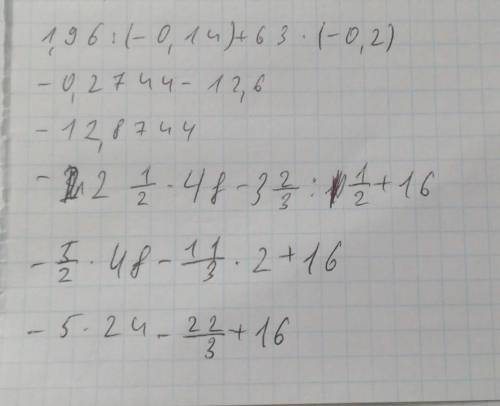 1,96:(-0,14)+63·(-0,2)
-0,2744-12,6
-12,8744
-2 1/2·48-3 2/3:1/2+16
-5/2·48-11/3·2+16
-5·24-22/3+16